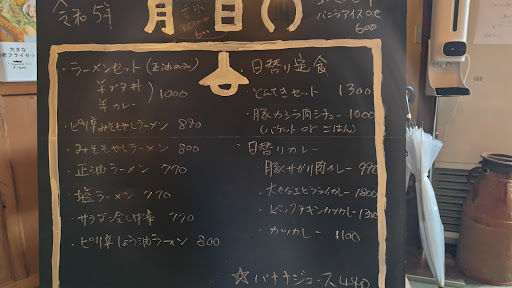 令和5年 月 日( )
バニラアイスのせ
600
大きな
・ラーメンセット(正油のみ)
半ブタ丼
半カレー
1000
・ピリ辛みそもやしラーメン 880
・みそもやしラーメン 800
・正油ラーメン 770
・塩ラーメン 770
・サラダ冷し中華 770
・ピリ辛しょう油ラーメン 800
・日替り定食
・とんてきセット 1300
・豚カシラ肉シチュー 1000
(バケット or ごはん)
・日替りカレー
豚サガリ肉カレー 990
・大きなエビフライカレー 1800
・ビックチキンカツカレー 1300
・カツカレー 1100
☆バナナジュース 440